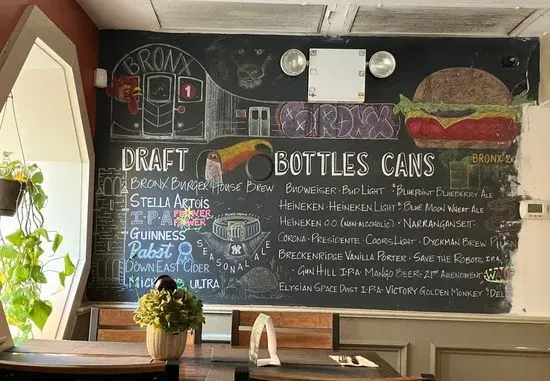 BRONX
1
BRONX
BRONX
DRAFT
BRONX BURGER HOUSE BREW
STELLA ARTOIS
I.P.A FLOWER POWER
GUINNESS
Pabst
DOWN EAST CIDER
ULTRA
SEASONAL ALE
BOTTLES CANS
BUDWEISER · BUD LIGHT · BLUEPOINT BLUEBERRY ALE
HEINEKEN · HEINEKEN LIGHT · BLUE MOON WHEAT ALE
HEINEKEN 0.0 (NON-ALCOHOLIC) · NARRANGANSETT ·
CORONA · PRESIDENTE · COORS LIGHT · DYCKMAN BREW
BRECKENRIDGE VANILLA PORTER · SAVE THE ROBOTS IPA
· GUN HILL IPA · MANGO BEER · 21ST AMENDMENT
ELYSIAN SPACE DUST I.P.A · VICTORY GOLDEN MONKEY